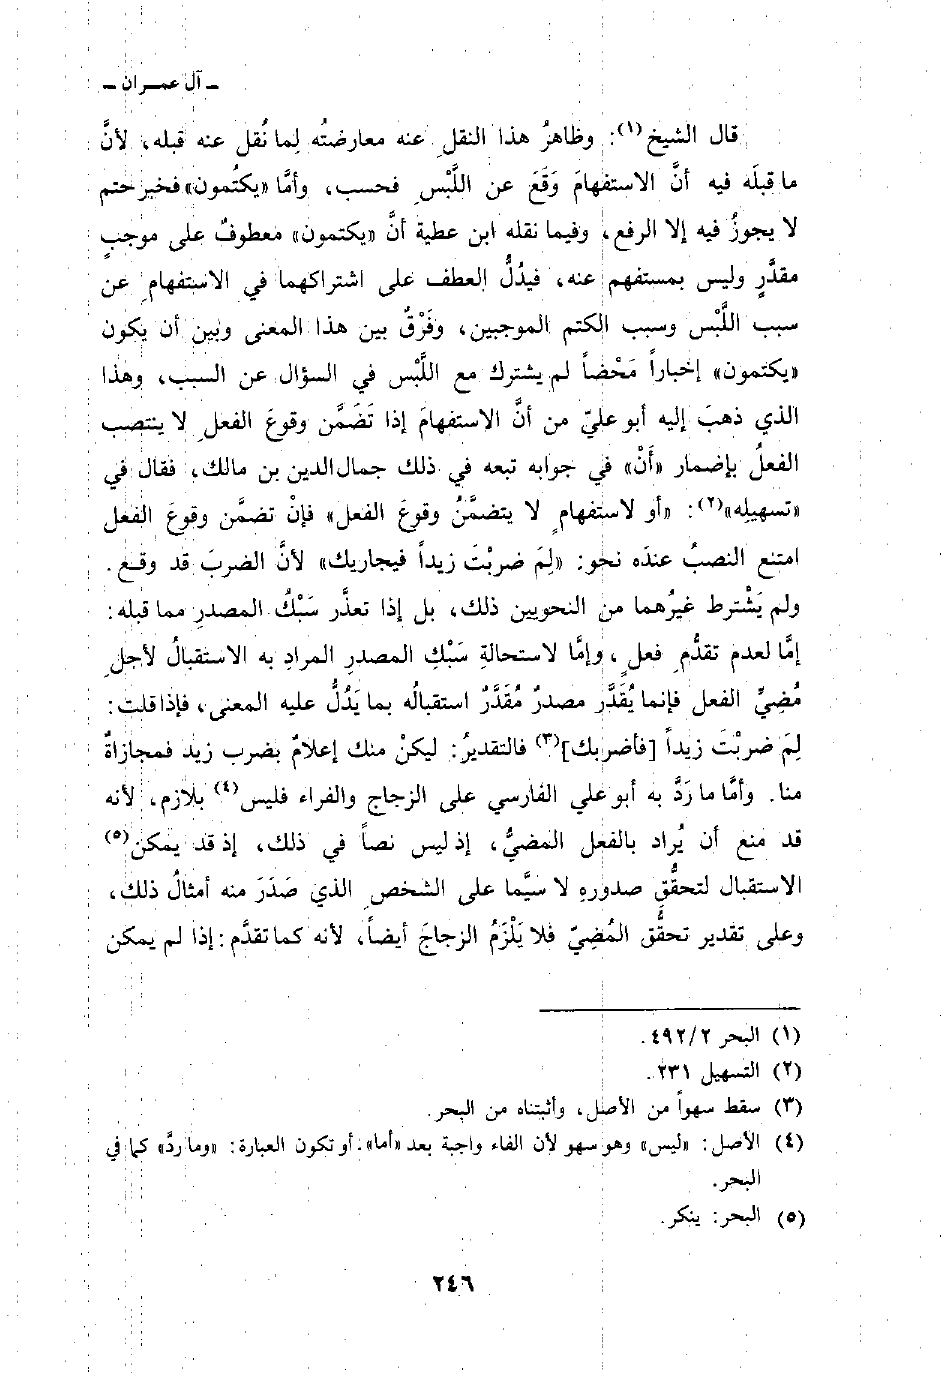 ـ آل عمـران ـ
قال الشيخ(١): وظاهرُ هذا النقلِ عنه معارضتُه لِما نُقل عنه قبله، لأنَّ
ما قبلَه فيه أنَّ الاستفهامَ وَقَعَ عن اللَّبْسِ فحسب، وأمَّا «يكتُمون» فخبر حتم
لا يجوزُ فيه إلا الرفع، وفيما نقله ابن عطية أنَّ «يكتمون» معطوفٌ على موجبٍ
مقدَّرٍ وليس بمستفهم عنه، فيدُلُّ العطف على اشتراكهما في الاستفهامِ عن
سبب اللَّبْس وسبب الكتم الموجبين، وفَرْقٌ بين هذا المعنى وبين أن يكون
«يكتمون» إخباراً مَحْضاً لم يشترك مع اللَّبْس في السؤال عن السبب، وهذا
الذي ذهبَ إليه أبو عليّ من أنَّ الاستفهامَ إذا تَضَمَّن وقوعَ الفعلِ لا ينتصب
الفعلُ بإضمار «أَنْ» في جوابه تبعه في ذلك جمال‌الدين بن مالك، فقال في
«تسهيلِه»(٢): «أو لاستفهامٍ لا يتضمَّنُ وقوعَ الفعل» فإنْ تضمَّن وقوعَ الفعل
امتنع النصبُ عندَه نحو: «لِمَ ضربْتَ زيداً فيجاريك» لأنَّ الضربَ قد وقـع.
ولم يَشْترط غيرُهما من النحويين ذلك، بل إذا تعذَّر سَبْكُ المصدرِ مما قبله:
إمَّا لعدم تقدُّمِ فعلٍ، وإمَّا لاستحالةِ سَبْكِ المصدرِ المرادِ به الاستقبالُ لأجلِ
مُضِيِّ الفعل فإنما يُقَدَّر مصدرٌ مُقَدَّرٌ استقبالُه بما يَدُلُّ عليه المعنى، فإذا قلت:
لِمَ ضربْتَ زيداً [فأضربك](٣) فالتقديرُ: ليكنْ منك إعلامٌ بضرب زيد فمجازاةٌ
منا. وأمَّا ما رَدَّ به أبو علي الفارسي على الزجاج والفراء فليس(٤) بلازم، لأنه
قد منع أن يُراد بالفعل المضيُّ، إذ ليس نصاً في ذلك، إذ قد يمكن(٥)
الاستقبال لتحقُّقِ صدورِه لا سيَّما على الشخصِ الذي صَدَرَ منه أمثالُ ذلك،
وعلى تقدير تحقُّق المُضِيّ فلا يَلْزَمُ الزجاجَ أيضاً، لأنه كما تقدَّم: إذا لم يمكن
(١) البحر ٤٩٢/٢.
(٢) التسهيل ٢٣١.
(٣) سقط سهواً من الأصل، وأثبتناه من البحر.
(٤) الأصل: «ليس» وهو سهو لأن الفاء واجبة بعد «أما». أو تكون العبارة: «وما ردَّ» كما في
البحر.
(٥) البحر: ينكر.
٢٤٦